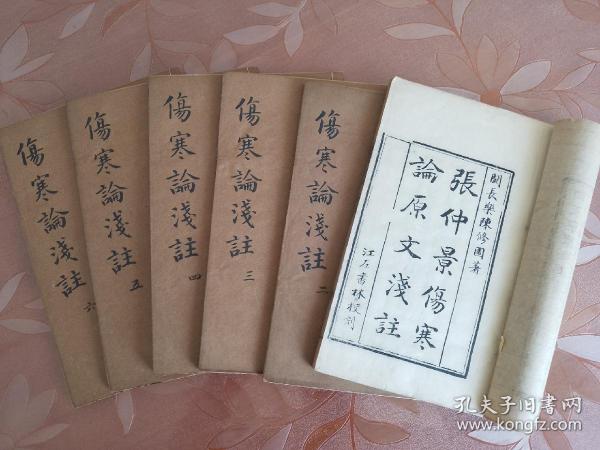 傷寒論淺註
六
傷寒論淺註
五
傷寒論淺註
四
傷寒論淺註
三
傷寒論淺註
二
閩長樂陳修園著
張仲景傷寒
論原文淺註
江左書林校刊
孔夫子旧书网
www.kongfz.com